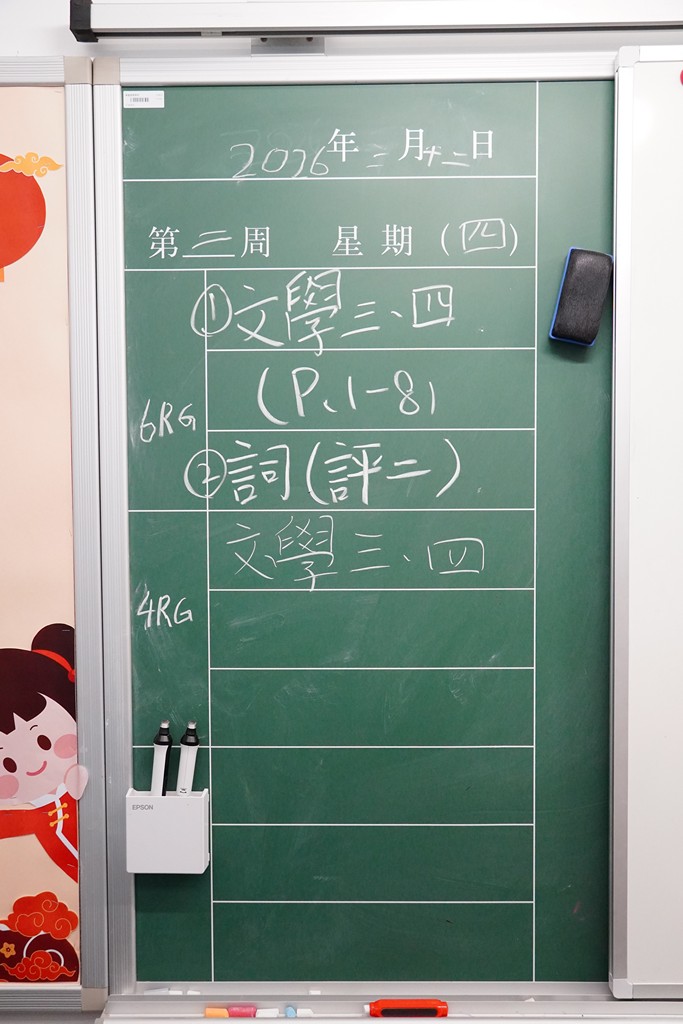 2026年二月十二日
第三周 星期(四)
①文學三、四
(P.1-8)
6RG
②詞(評二)
文學三、四
4RG
EPSON